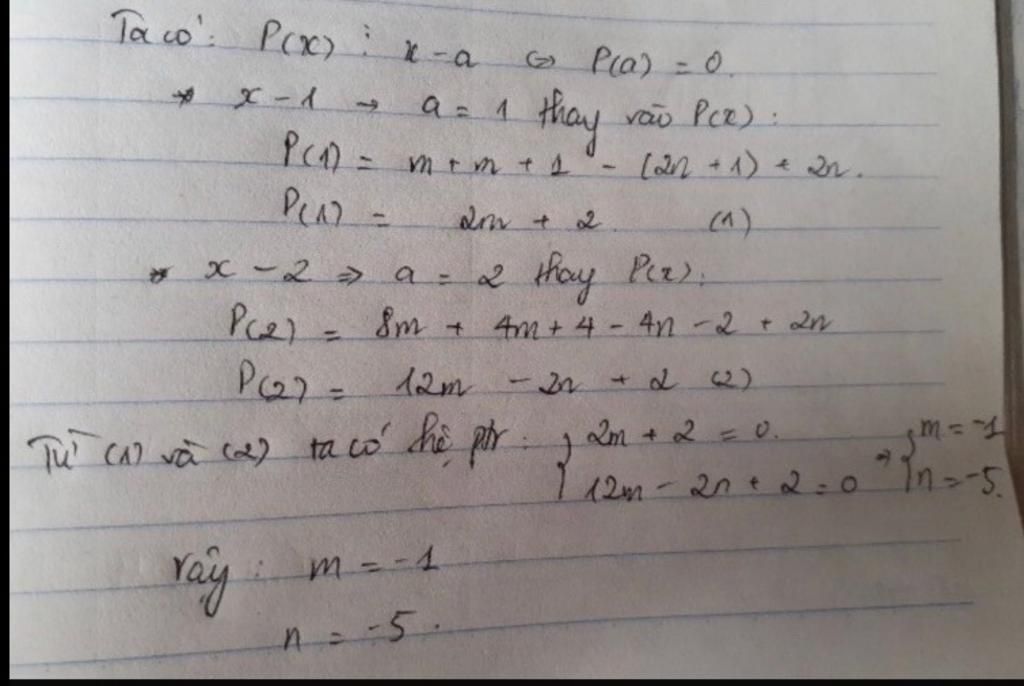 Ta có: P(x) ⋮ x - a ⇔ P(a) = 0.
* x - 1 → a = 1 thay vào P(x):
P(1) = m + m + 1 - (2n + 1) + 2n.
P(1) = 2m + 2 (1)
* x - 2 ⇒ a = 2 thay P(x):
P(2) = 8m + 4m + 4 - 4n - 2 + 2n
P(2) = 12m - 2n + 2 (2)
Từ (1) và (2) ta có hệ ptr: { 2m + 2 = 0. ⇒ { m = -1
12m - 2n + 2 = 0 n = -5.
vậy: m = -1
n = -5.